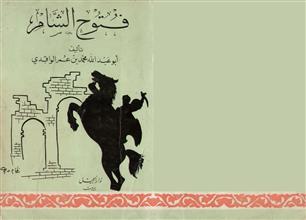 فتوح الشام
تأليف
أبو عبد الله محمد بن عمر الواقدي
دار الجيل
بيروت